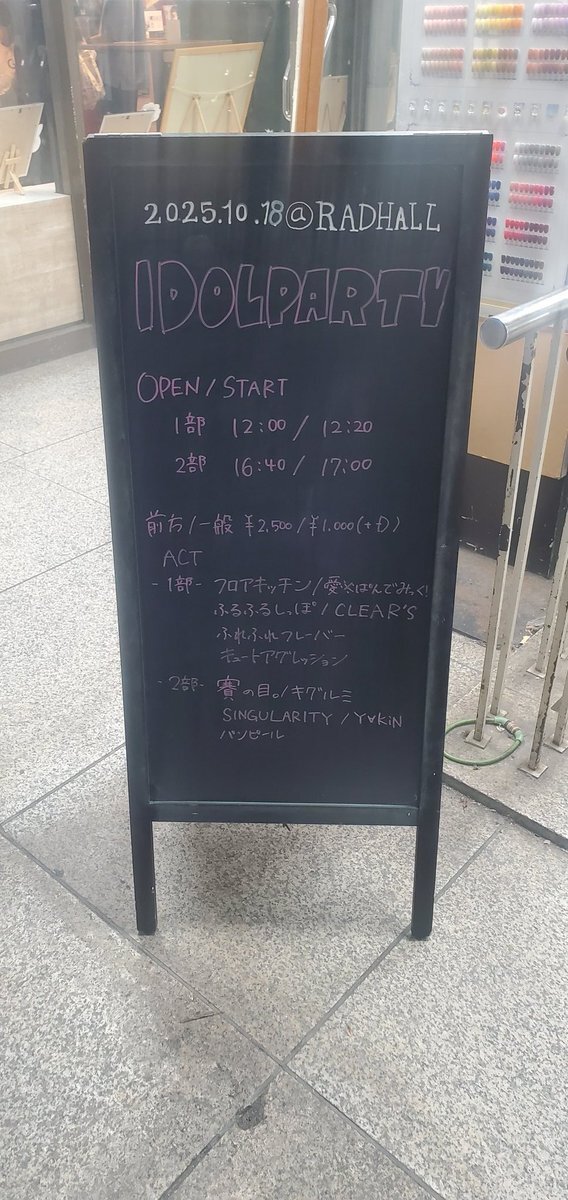 2025.10.18@RADHALL
IDOLPARTY
OPEN/START
1部 12:00/12:20
2部 16:40/17:00
前方/一般 ¥2,500/¥1,000(+D)
ACT
-1部- フロアキッチン/愛※ぱんでみっく!
ふるふるしっぽ/CLEAR'S
ふれふれフレーバー
キュートアグレッション
-2部- 賽の目。/キグルミ
SINGULARITY/Y∀KiN
バンピール